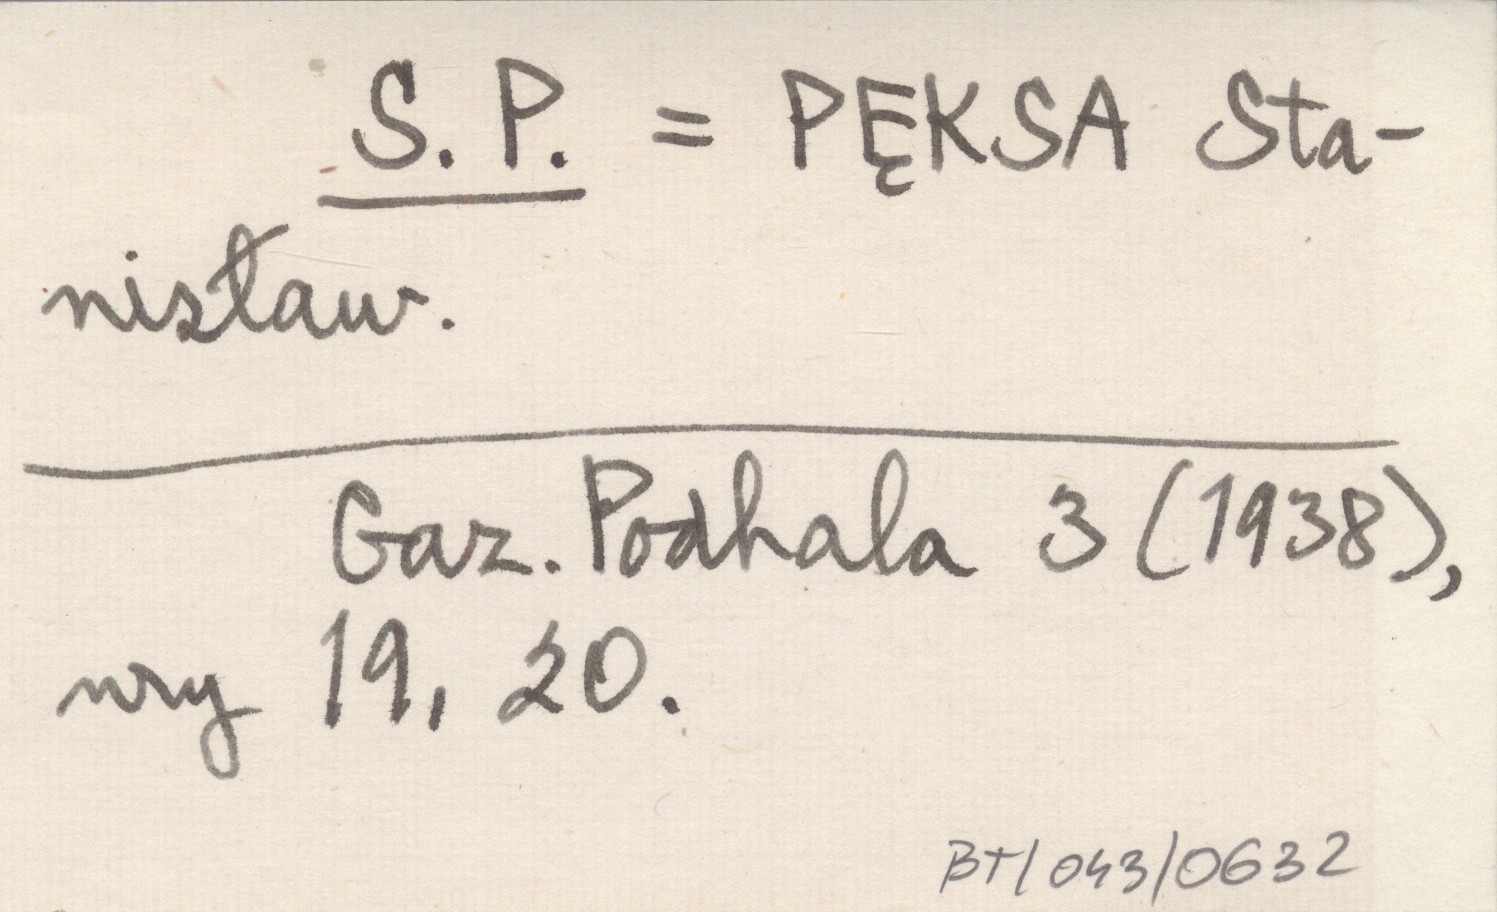 S. P. = PĘKSA Sta-
nisław.
Gaz. Podhala 3 (1938),
nry 19, 20.
BT/043/0632